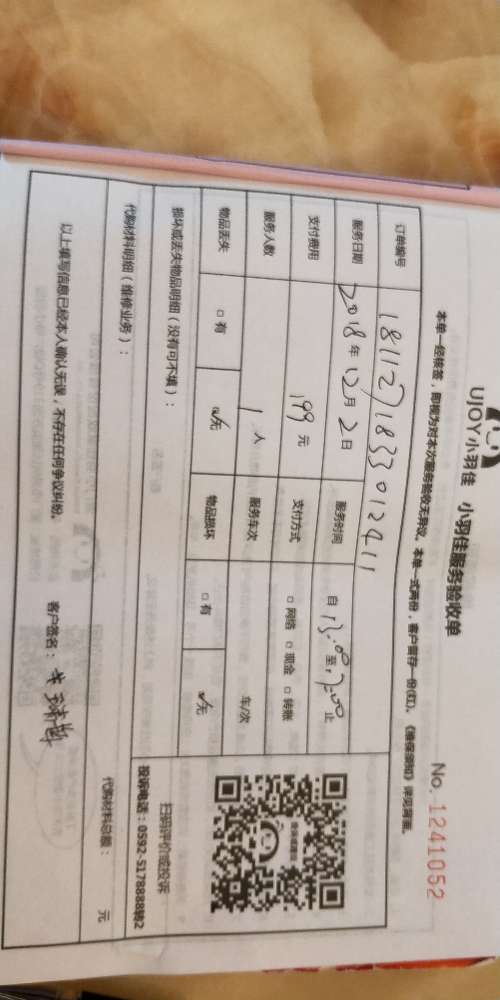 UJOY小羽佳 小羽佳服务验收单
No.1241052
本单一经核签，即视为对本次服务验收无异议。本单一式两份，客户留存一份(红)。《维保须知》详见背面。
订单编号 181127183301241 1
服务日期 2018年12月2日 服务时间 自13:00至17:00止
支付费用 199元 支付方式 □网络 □现金 □转账
服务人数 1人 服务车次 车/次
物品丢失 □有 ☑无 物品损坏 □有 ☑无
损坏或丢失物品明细（没有可不填）：
扫码评价或投诉
投诉电话：0592-5178888转2
代购材料明细（维修业务）： 代购材料总额： 元
以上填写信息已经本人确认无误，不存在任何争议纠纷。 客户签名：